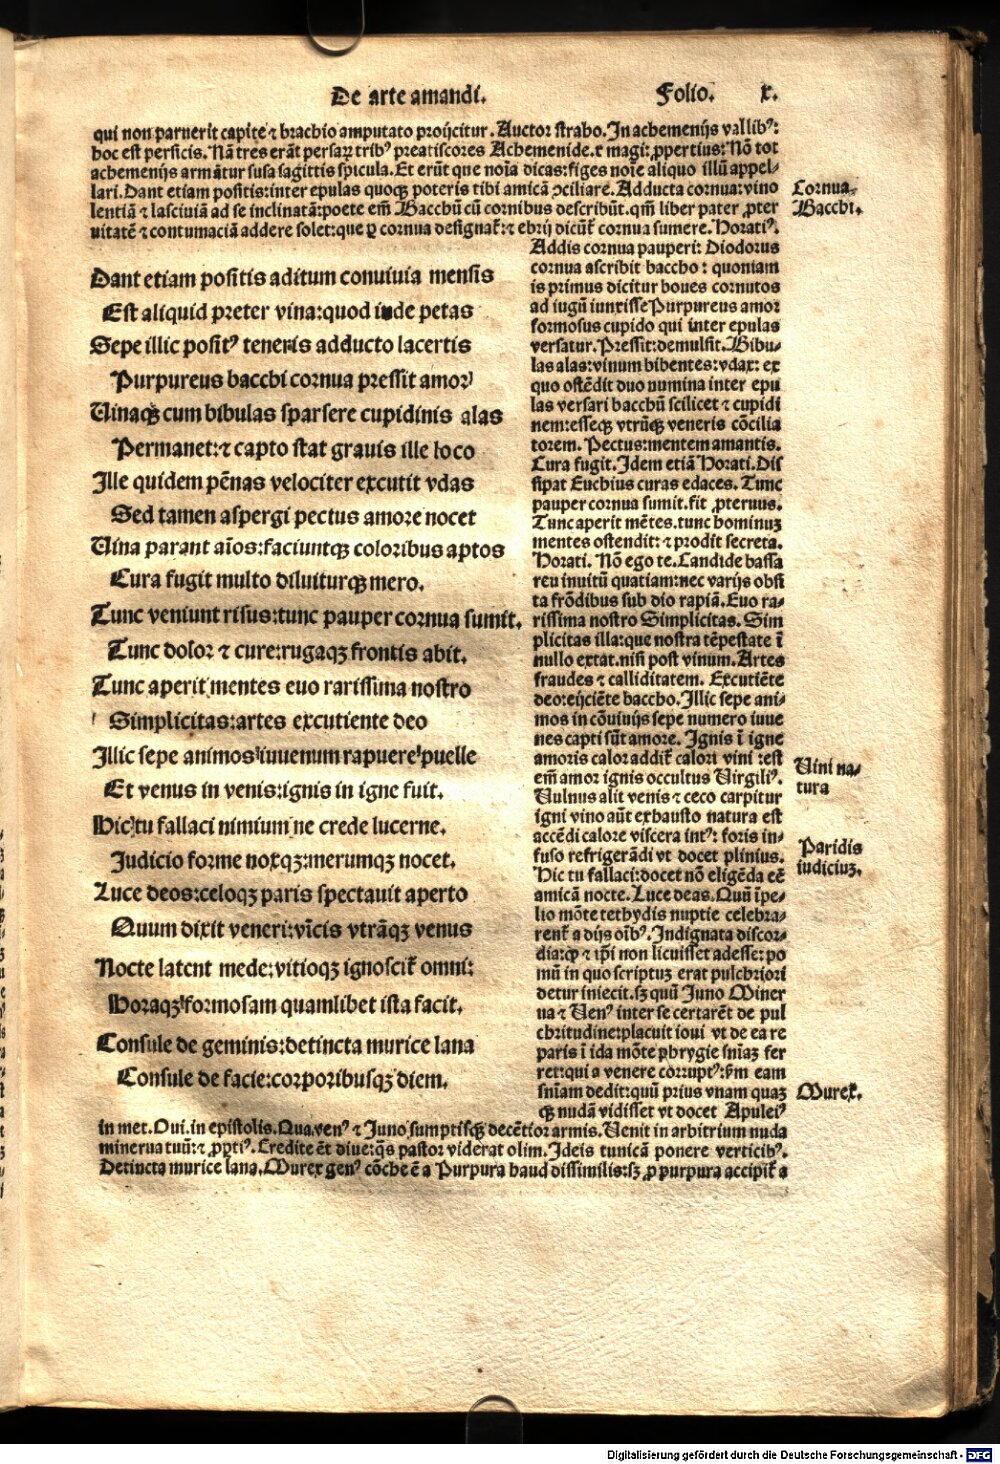 De arte amandi. Folio. x.
qui non paruerit capite ⁊ brachio amputato proijcitur. Auctor strabo. In achemenijs vallibꝰ:
hoc est persicis. Nā tres erāt persaꝝ tribꝰ preatiscores Achemenide. ⁊ magi: ꝓpertius: Nō tot
achemenijs armātur susa sagittis spicula. Et erūt que noīa dicas: figes noīe aliquo illū appel-
lari. Dant etiam positis: inter epulas quoqꝫ poteris tibi amicā ꝯciliare. Adducta cornua: vino
lentiā ⁊ lasciuiā ad se inclinatā: poete em̄ Bacchū cū cornibus describūt. qm̄ liber pater ꝓter
uitatē ⁊ contumaciā addere solet: que ꝑ cornua designat̄: ⁊ ebrij dicūt̄ cornua sumere. Horatiꝰ.
Cornua
Bacchi.
Dant etiam positis aditum conuiuia mensis
Est aliquid preter vina: quod inde petas
Sepe illic positꝰ teneris adducto lacertis
Purpureus bacchi cornua pressit amor
Uinaqꝫ cum bibulas sparsere cupidinis alas
Permanet: ⁊ capto stat grauis ille loco
Ille quidem pēnas velociter excutit vdas
Sed tamen aspergi pectus amore nocet
Uina parant aīos: faciuntqꝫ coloribus aptos
Cura fugit multo diluiturqꝫ mero.
Tunc veniunt risus: tunc pauper cornua sumit.
Tunc dolor ⁊ cure: rugaqꝫ frontis abit.
Tunc aperit mentes euo rarissima nostro
Simplicitas: artes excutiente deo
Illic sepe animos iuuenum rapuere puelle
Et venus in venis: ignis in igne fuit.
Hic tu fallaci nimium ne crede lucerne.
Judicio forme noxqꝫ: merumqꝫ nocet.
Luce deos: celoqꝫ paris spectauit aperto
Quum dixit veneri: vīcis vtrāqꝫ venus
Nocte latent mede: vitioqꝫ ignoscit̄ omni:
Horaqꝫ formosam quamlibet ista facit.
Consule de geminis: detincta murice lana
Consule de facie: corporibusqꝫ diem.
Addis cornua pauperi: Diodorus
cornua ascribit baccho: quoniam
is primus dicitur boues cornutos
ad iugū iunxisse Purpureus amor
formosus cupido qui inter epulas
versatur. Pressit: demulsit. Bibu-
las alas: vinum bibentes: vdas: ex
quo ostēdit duo numina inter epu
las versari bacchū scilicet ⁊ cupidi
nem: esseqꝫ vtrūqꝫ veneris cōcilia
torem. Pectus: mentem amantis.
Cura fugit. Idem etiā Horati. Dis
sipat Euchius curas edaces. Tunc
pauper cornua sumit. fit ꝓteruus.
Tunc aperit mētes. tunc hominuꝫ
mentes ostendit: ⁊ prodit secreta.
Horati. Nō ego te. Candide bassa
reu inuitū quatiam: nec varijs obsi
ta frōdibus sub dio rapiā. Euo ra-
rissima nostro Simplicitas. Sim
plicitas illa: que nostra tēpestate ī
nullo extat. nisi post vinum. Artes
fraudes ⁊ calliditatem. Excutiēte
deo: eijciēte baccho. Illic sepe ani-
mos in cōuiuijs sepe numero iuue
nes capti sūt amore. Ignis ī igne
amoris calor addit̄ calori vini: est
em̄ amor ignis occultus Virgiliꝰ.
Vulnus alit venis ⁊ ceco carpitur
igni vino aūt exhausto natura est
accēdi calore viscera intꝰ: foris in-
fuso refrigerādi vt docet plinius.
Hic tu fallaci: docet nō eligēda eē
amicā nocte. Luce deas. Quū ī pe-
lio mōte tethydis nuptie celebra-
rent̄ a dijs oībꝰ. Indignata discor-
dia: ꝙ ⁊ ip̄i non licuisset adesse: po
mū in quo scriptuꝫ erat pulchriori
detur iniecit. sꝫ quū Juno Miner
ua ⁊ Venꝰ inter se certarēt de pul
chritudine: placuit ioui vt de ea re
paris ī ida mōte phrygie sn̄iaꝫ fer
ret: qui a venere corruptꝰ: ꝑm eam
sn̄iam dedit: quū prius vnam quaꝫ
qꝫ nudā vidisset vt docet Apuleiꝰ
Vini na-
tura
Paridis
iudiciuꝫ.
Murex.
in met. Oui. in epistolis. Qua. venꝰ ⁊ Juno sumptisqꝫ decētior armis. Venit in arbitrium nuda
minerua tuū: ⁊ ꝓp̄tiꝰ. Credite ēt diue: q̄s pastor viderat olim. Ideis tunicā ponere verticibꝰ.
Detincta murice lana. Murex genꝰ cōche ē a Purpura haud dissimilis: sꝫ ꝓ purpura accipit̄ a
Digitalisierung gefördert durch die Deutsche Forschungsgemeinschaft - DFG